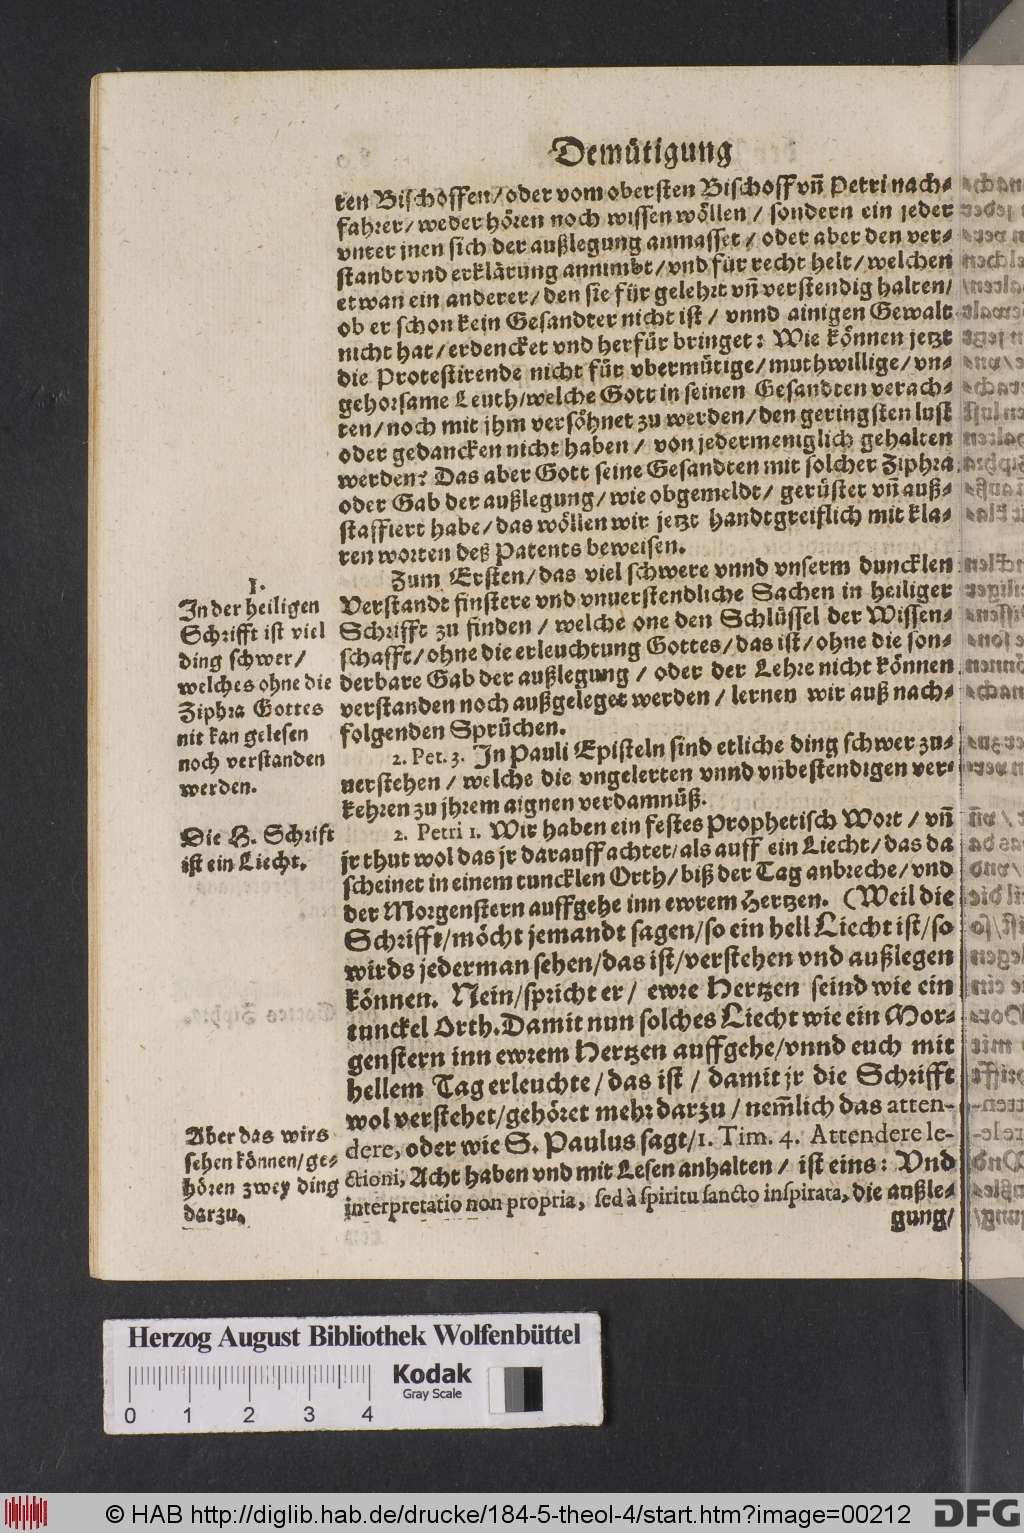 Demütigung
ren Bischoffen/ oder vom obersten Bischoff vñ Petri nach-
fahrer/ weder hören noch wissen wöllen / sondern ein jeder
vnter jnen sich der außlegung anmasset/ oder aber den ver-
standt vnd erklärung annimbt/ vnd für recht helt/ welchen
etwan ein anderer/ den sie für gelehrt vñ verstendig halten/
ob er schon kein Gesandter nicht ist / vnnd ainigen Gewalt
nicht hat/ erdencket vnd herfür bringet: Wie können jetzt
die Protestirende nicht für vbermütige/ muthwillige/ vn-
gehorsame Leuth/welche Gott in seinen Gesandten verach-
ten/ noch mit jhm versöhnet zu werden/ den geringsten lust
oder gedancken nicht haben / von jedermeniglich gehalten
werden? Das aber Gott seine Gesandten mit solcher Ziphra
oder Gab der außlegung/ wie obgemeldt/ gerüstet vñ auß-
staffiert habe/ das wöllen wir jetzt handtgreiflich mit kla-
ren worten deß Patents beweisen.
Zum Ersten/ das viel schwere vnnd vnserm duncklen
Verstandt finstere vnd vnuerstendliche Sachen in heiliger
Schrifft zu finden / welche one den Schlüssel der Wissen-
schafft/ ohne die erleuchtung Gottes/ das ist/ ohne die son-
derbare Gab der außlegung / oder der Lehre nicht können
verstanden noch außgeleget werden / lernen wir auß nach-
folgenden Sprüchen.
1.
In der heiligen
Schrifft ist viel
ding schwer/
welches ohne die
Ziphra Gottes
nit kan gelesen
noch verstanden
werden.
2. Pet. 3. In Pauli Episteln sind etliche ding schwer zu-
uerstehen / welche die vngelerten vnnd vnbestendigen ver-
kehren zu jhrem aignen verdamnüß.
2. Petri 1. Wir haben ein festes Prophetisch Wort / vñ
jr thut wol das jr darauff achtet/ als auff ein Liecht/ das da
scheinet in einem tuncklen Orth/ biß der Tag anbreche/ vnd
der Morgenstern auffgehe inn ewrem Hertzen. (Weil die
Schrifft/ möcht jemandt sagen/ so ein hell Liecht ist/ so
wirds jederman sehen/ das ist/ verstehen vnd außlegen
können. Nein/ spricht er/ ewre Hertzen seind wie ein
tunckel Orth. Damit nun solches Liecht wie ein Mor-
genstern inn ewrem Hertzen auffgehe/ vnnd euch mit
hellem Tag erleuchte/ das ist / damit jr die Schrifft
wol verstehet/ gehöret mehr darzu / nem̃lich das atten-
dere, oder wie S. Paulus sagt/ 1. Tim. 4. Attendere le-
ctioni, Acht haben vnd mit Lesen anhalten / ist eins: Vnd
interpretatio non propria, sed à spiritu sancto inspirata, die außle-
gung/
Die H. Schrift
ist ein Liecht.
Aber das wirs
sehen können/ ge-
hören zwey ding
darzu.
Herzog August Bibliothek Wolfenbüttel
Kodak
Gray Scale
0 1 2 3 4
© HAB http://diglib.hab.de/drucke/184-5-theol-4/start.htm?image=00212
DFG